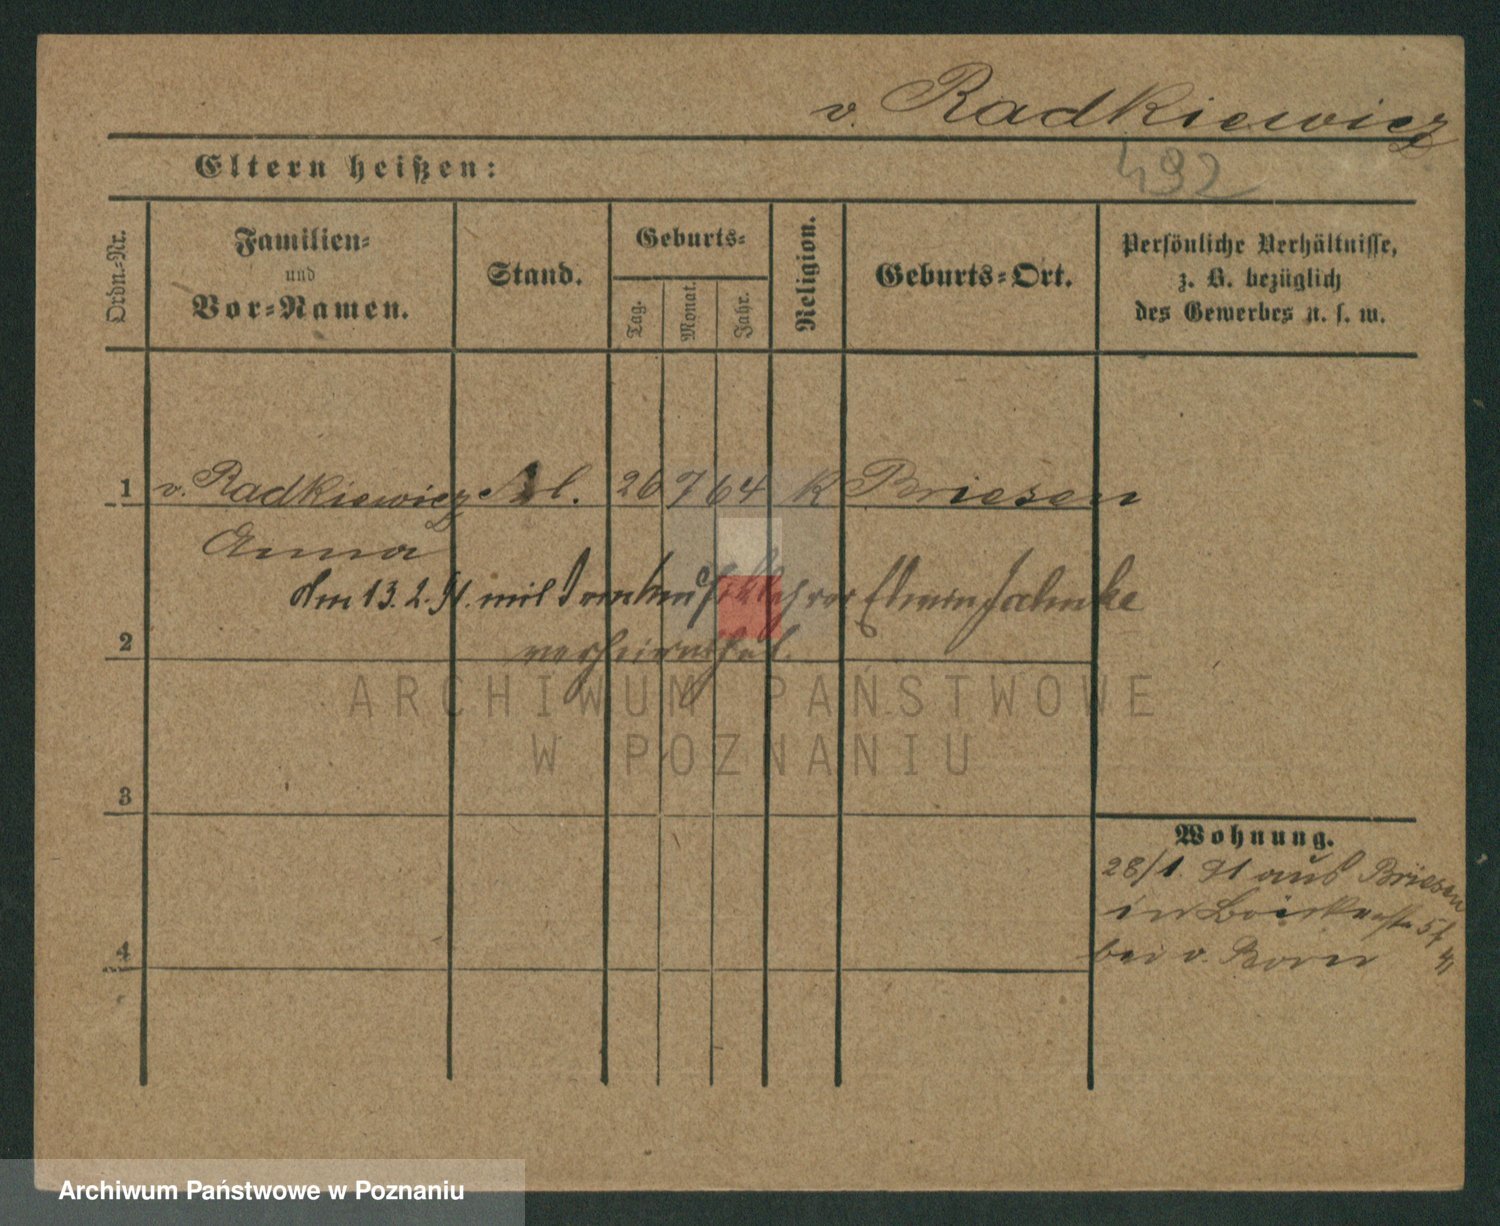 v. Radkiewicz
Eltern heißen:
492
Ordn.-Nr.
Familien-
und
Vor-Namen.
Stand.
Geburts-
Tag.
Monat.
Jahr.
Religion.
Geburts-Ort.
Persönliche Verhältnisse,
z. B. bezüglich
des Gewerbes u. s. w.
1 v. Radkiewicz Frl. 26 7 64 K Briesen
Anna
Am 13.2.91. mit dem Musiklehrer Edwin Jahnke
2
verheirathet.
ARCHIWUM PAŃSTWOWE
W POZNANIU
3
Wohnung.
28/1. 91 aus Briesen
in 5
4
bei v. Born
Archiwum Państwowe w Poznaniu